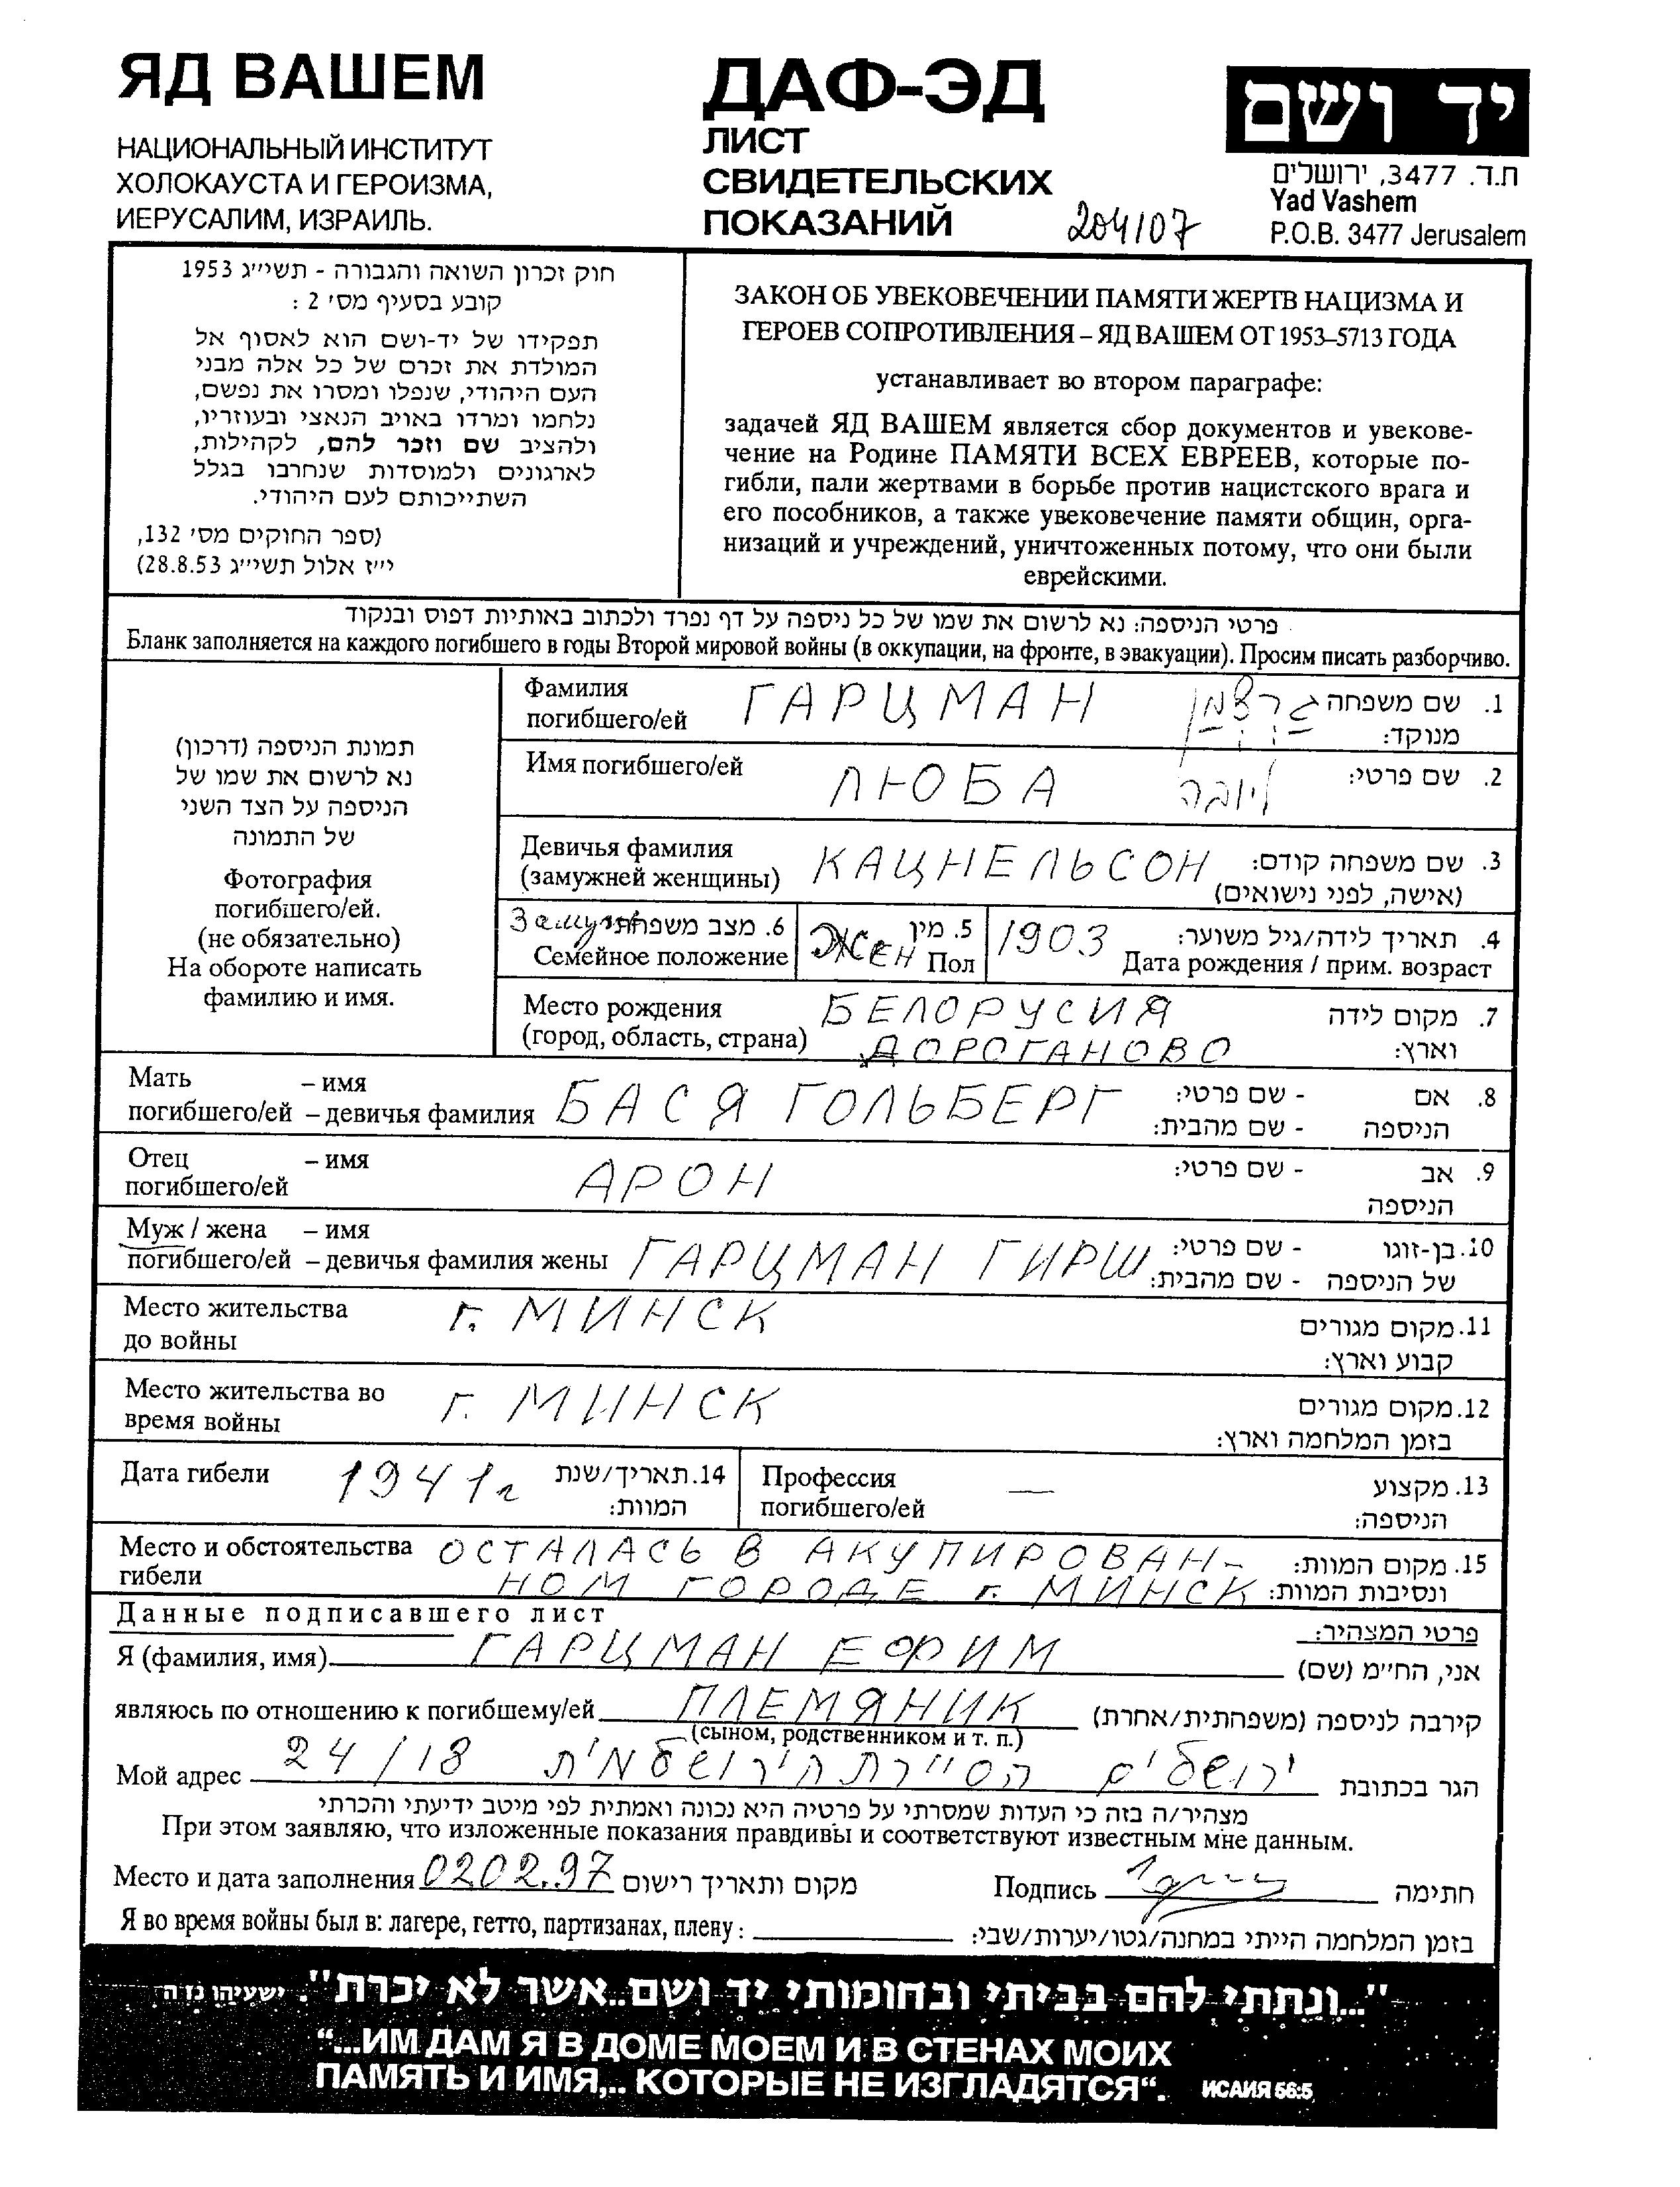 ЯД ВАШЕМ
НАЦИОНАЛЬНЫЙ ИНСТИТУТ
ХОЛОКАУСТА И ГЕРОИЗМА,
ИЕРУСАЛИМ, ИЗРАИЛЬ.
ДАФ-ЭД
ЛИСТ
СВИДЕТЕЛЬСКИХ
ПОКАЗАНИЙ
204107
יד ושם
ת.ד. 3477, ירושלים
Yad Vashem
P.O.B. 3477 Jerusalem
חוק זכרון השואה והגבורה - תשי״ג 1953
קובע בסעיף מס׳ 2 :
תפקידו של יד-ושם הוא לאסוף אל
המולדת את זכרם של כל אלה מבני
העם היהודי, שנפלו ומסרו את נפשם,
נלחמו ומרדו באויב הנאצי ובעוזריו,
ולהציב שם וזכר להם, לקהילות,
לארגונים ולמוסדות שנחרבו בגלל
השתייכותם לעם היהודי.
(ספר החוקים מס׳ 132,
י״ז אלול תשי״ג 28.8.53)
ЗАКОН ОБ УВЕКОВЕЧЕНИИ ПАМЯТИ ЖЕРТВ НАЦИЗМА И
ГЕРОЕВ СОПРОТИВЛЕНИЯ – ЯД ВАШЕМ ОТ 1953–5713 ГОДА
устанавливает во втором параграфе:
задачей ЯД ВАШЕМ является сбор документов и увекове-
чение на Родине ПАМЯТИ ВСЕХ ЕВРЕЕВ, которые по-
гибли, пали жертвами в борьбе против нацистского врага и
его пособников, а также увековечение памяти общин, орга-
низаций и учреждений, уничтоженных потому, что они были
еврейскими.
פרטי הניספה: נא לרשום את שמו של כל ניספה על דף נפרד ולכתוב באותיות דפוס ובנקוד
Бланк заполняется на каждого погибшего в годы Второй мировой войны (в оккупации, на фронте, в эвакуации). Просим писать разборчиво.
תמונת הניספה (דרכון)
נא לרשום את שמו של
הניספה על הצד השני
של התמונה
Фотография
погибшего/ей.
(не обязательно)
На обороте написать
фамилию и имя.
Фамилия ГАРЦМАН גרצמן 1. שם משפחה
погибшего/ей מנוקד:
Имя погибшего/ей ЛЮБА ליובה 2. שם פרטי:
Девичья фамилия КАЦНЕЛЬСОН 3. שם משפחה קודם:
(замужней женщины) (אישה, לפני נישואים)
Замуж 6. מצב משפחתי:
Семейное положение
ЖЕН 5. מין
Пол
1903 4. תאריך לידה/גיל משוער:
Дата рождения / прим. возраст
Место рождения БЕЛОРУСИЯ 7. מקום לידה
(город, область, страна) ДОРОГАНОВО וארץ:
Мать – имя БАСЯ ГОЛЬБЕРГ 8. אם - שם פרטי:
погибшего/ей – девичья фамилия הניספה - שם מהבית:
Отец – имя АРОН 9. אב - שם פרטי:
погибшего/ей הניספה
Муж / жена – имя ГАРЦМАН ГИРШ 10. בן-זוגו - שם פרטי:
погибшего/ей – девичья фамилия жены של הניספה - שם מהבית:
Место жительства г. МИНСК 11. מקום מגורים
до войны קבוע וארץ:
Место жительства во г. МИНСК 12. מקום מגורים
время войны בזמן המלחמה וארץ:
Дата гибели 1941г 14. תאריך/שנת
המוות:
Профессия — 13. מקצוע
погибшего/ей הניספה:
Место и обстоятельства ОСТАЛАСЬ В АКУПИРОВАН- 15. מקום המוות:
гибели НОМ ГОРОДЕ г. МИНСК ונסיבות המוות:
Данные подписавшего лист פרטי המצהיר:
Я (фамилия, имя) ГАРЦМАН ЕФИМ אני, הח״מ (שם)
являюсь по отношению к погибшему/ей ПЛЕМЯНИК קירבה לניספה (משפחתית/אחרת)
(сыном, родственником и т. п.)
Мой адрес ירושלים הסיירת הירושלמית 24/18 הגר בכתובת
מצהיר/ה בזה כי העדות שמסרתי על פרטיה היא נכונה ואמתית לפי מיטב ידיעתי והכרתי
При этом заявляю, что изложенные показания правдивы и соответствуют известным мне данным.
Место и дата заполнения 0202.97 מקום ותאריך רישום Подпись חתימה
Я во время войны был в: лагере, гетто, партизанах, плену : בזמן המלחמה הייתי במחנה/גטו/יערות/שבי:
"...ונתתי להם בביתי ובחומותי יד ושם..אשר לא יכרת". ישעיהו נו ה
“...ИМ ДАМ Я В ДОМЕ МОЕМ И В СТЕНАХ МОИХ
ПАМЯТЬ И ИМЯ,.. КОТОРЫЕ НЕ ИЗГЛАДЯТСЯ“. ИСАИЯ 56:5